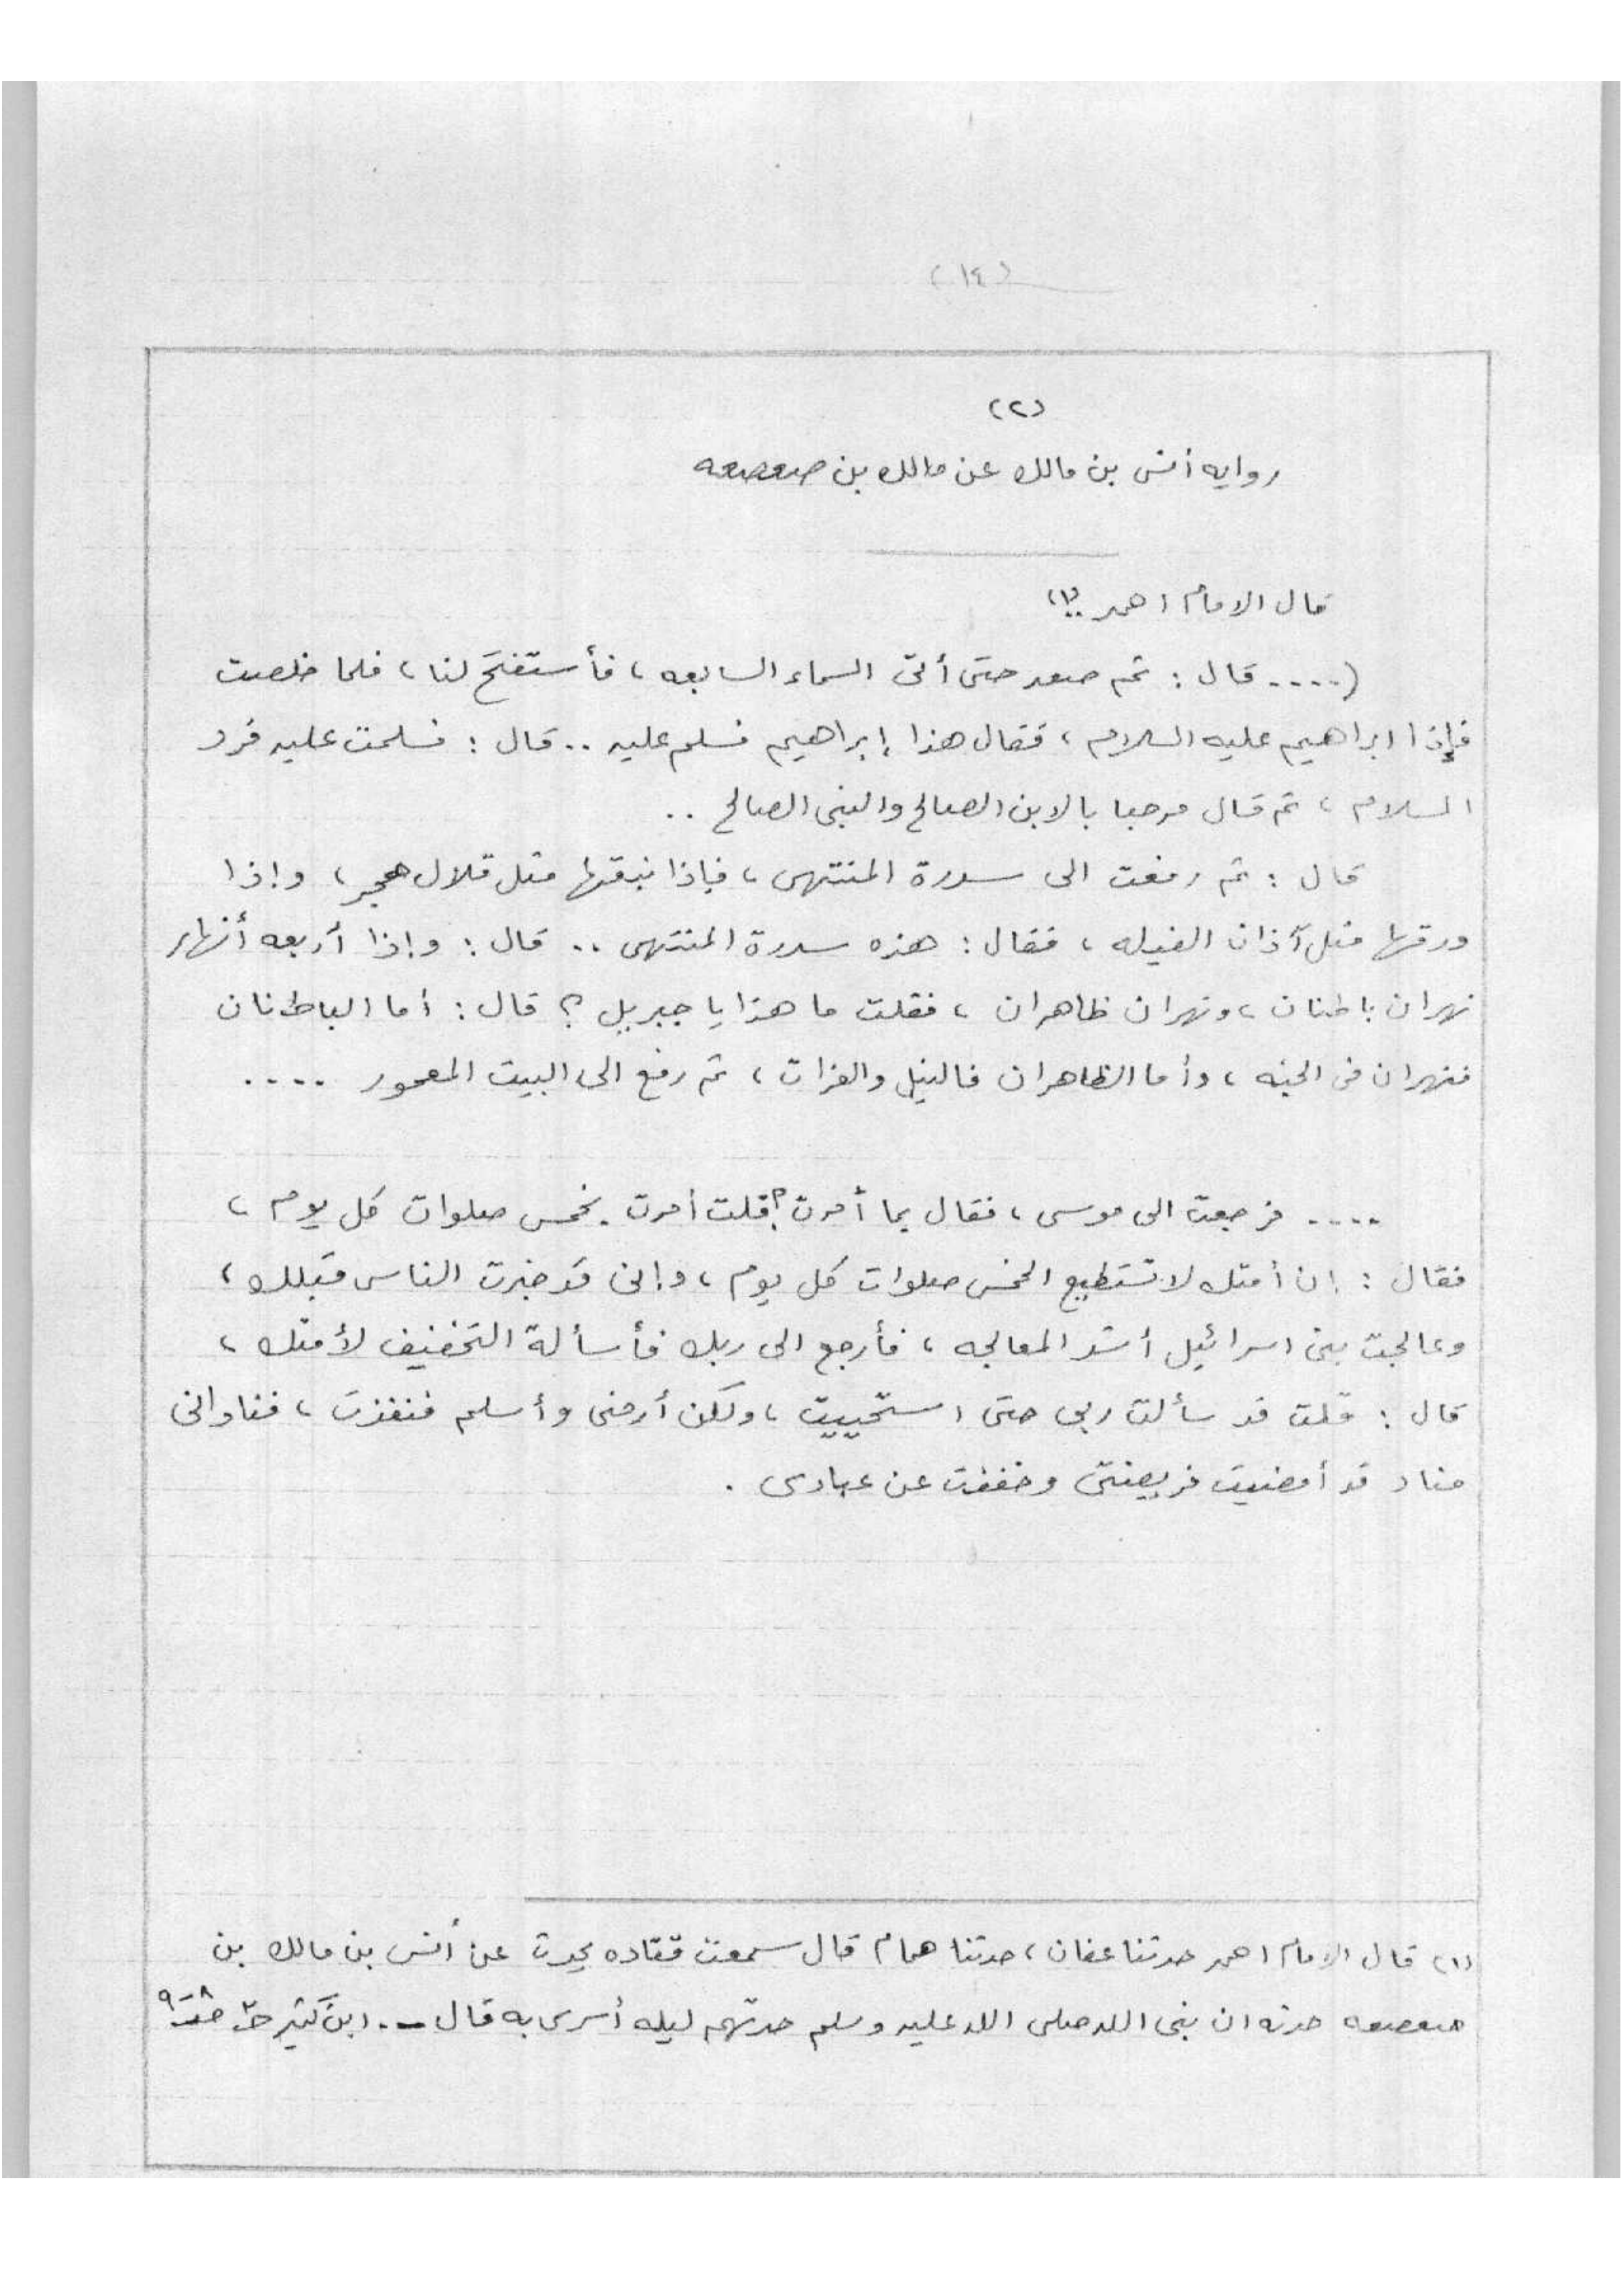 (١٤)
(٢)
روايه أنس بن مالك عن مالك بن صعصعه
قال الامام احمد (١)
(.... قال : ثم صعد حتى أتى السماء السابعه ، فأستفتح لنا ، فلما خلصت
فإذا ابراهيم عليه السلام ، فقال هذا إبراهيم فسلم عليه .. قال : فسلمت عليه فرد
السلام ، ثم قال مرحبا بالابن الصالح والنبى الصالح ..
قال : ثم رفعت الى سدرة المنتهى ، فإذا نبقها مثل قلال هجر ، وإذا
ورقها مثل آذان الفيله ، فقال : هذه سدرة المنتهى .. قال : وإذا أربعه أنهار
نهران باطنان ، ونهران ظاهران ، فقلت ما هذا يا جبريل ؟ قال : أما الباطنان
فنهران فى الجنه ، وأما الظاهران فالنيل والفرات ، ثم رفع الى البيت المعمور ....
.... فرجعت الى موسى ، فقال بما أمرت ؟ قلت أمرت بخمس صلوات كل يوم ،
فقال : إن أمتك لا تستطيع الخمس صلوات كل يوم ، وإنى قد خبرت الناس قبلك ،
وعالجت بنى اسرائيل أشد المعالجه ، فأرجع الى ربك فأسألة التخفيف لأمتك ،
قال : قلت قد سألت ربى حتى استحييت ، ولكن أرضى وأسلم فنفذت ، فنادانى
مناد قد أمضيت فريضتى وخففت عن عبادى .
(١) قال الامام احمد حدثنا عفان ، حدثنا همام قال سمعت قتاده يحدث عن أنس بن مالك بن
صعصعه حدثه ان نبى الله صلى الله عليه وسلم حدثهم ليله أسرى به قال -. ابن كثير